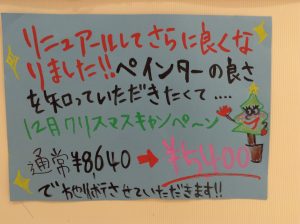 リニューアールしてさらに良くな
りました!!ペインターの良さ
を知っていただきたくて....
12月クリスマスキャンペーン
通常¥8,640➡¥5400
でお施行させていただきます!!